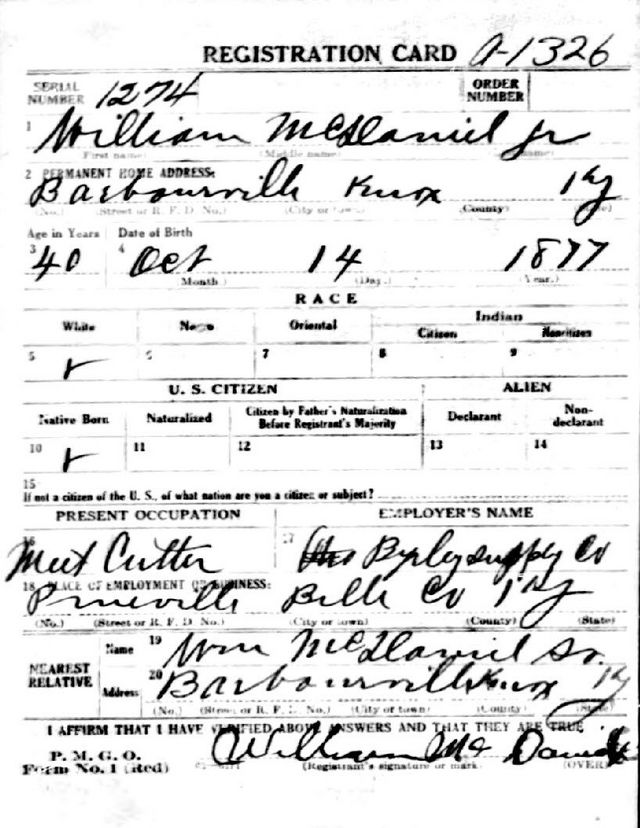 REGISTRATION CARD A-1326
SERIAL NUMBER 1274 ORDER NUMBER
1 William McDaniel Jr
(First name) (Middle name) name)
2 PERMANENT HOME ADDRESS:
Barbourville Knox Ky
(No.) (Street or R. F. D. No.) (City or town) (County)
Age in Years Date of Birth
3 40 4 Oct 14 1877
(Month.) (Day.) (Year.)
RACE
White Negro Oriental Indian
Citizen Noncitizen
5 ✓ 6 7 8 9
U. S. CITIZEN ALIEN
Native Born Naturalized Citizen by Father's Naturalization Before Registrant's Majority Declarant Non-declarant
10 ✓ 11 12 13 14
15
If not a citizen of the U. S., of what nation are you a citizen or subject?
PRESENT OCCUPATION EMPLOYER'S NAME
16 Meet Cutter 17 supply Co
18 PLACE OF EMPLOYMENT OR BUSINESS:
Pineville Bell Co Ky
(No.) (Street or R. F. D. No.) (City or town) (County) (State)
NEAREST RELATIVE
Name 19 Wm McDaniel Sr.
Address 20 Barbourville Knox Ky
(No.) (Street or R. F. D. No.) (City or town) (County) (State)
I AFFIRM THAT I HAVE VERIFIED ABOVE ANSWERS AND THAT THEY ARE TRUE
P. M. G. O.
Form No. 1 (Red) William Mc Daniel
(Registrant's signature or mark) (OVER)